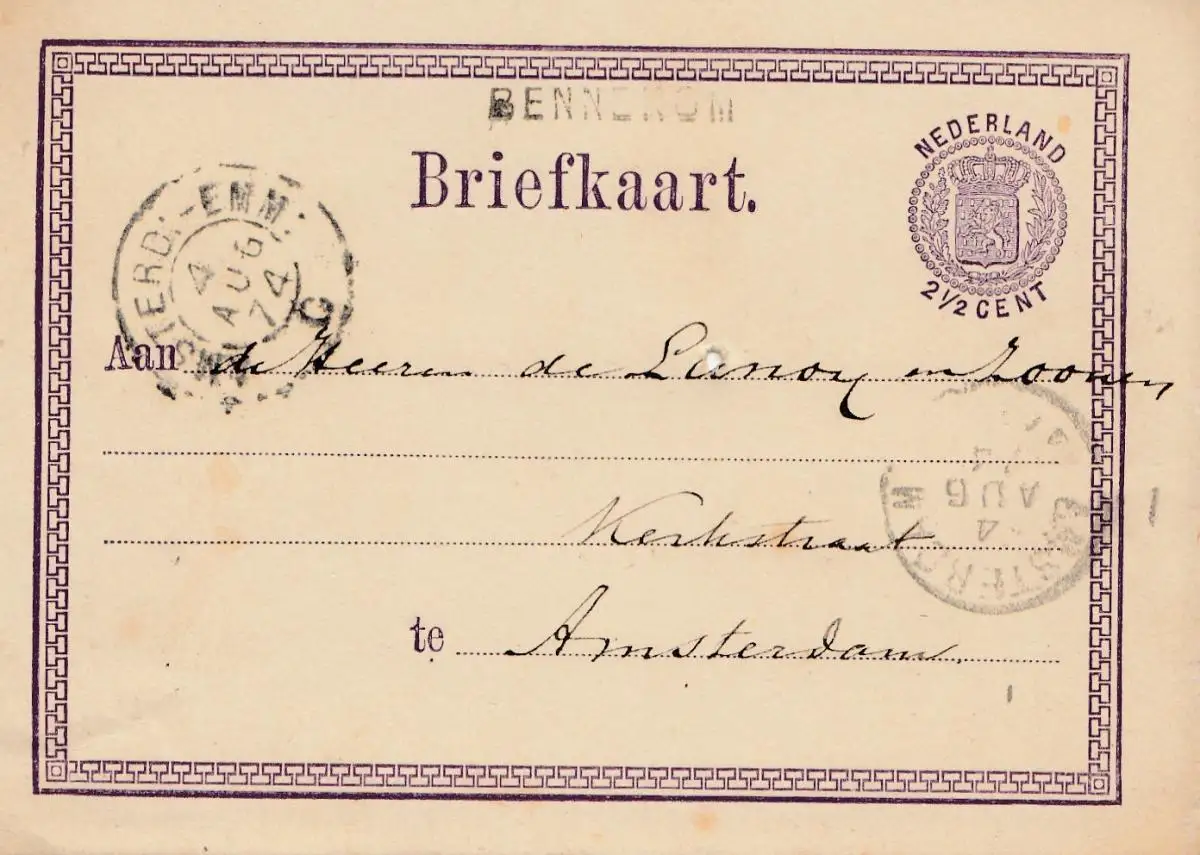 BENNEKOM
Briefkaart.
NEDERLAND
2½ CENT
AMSTERD:-EMM: C
4
AUG
74
Aan de Heeren de Lanoy en Zoonen
Kerkstraat
te Amsterdam.
4
AUG
74